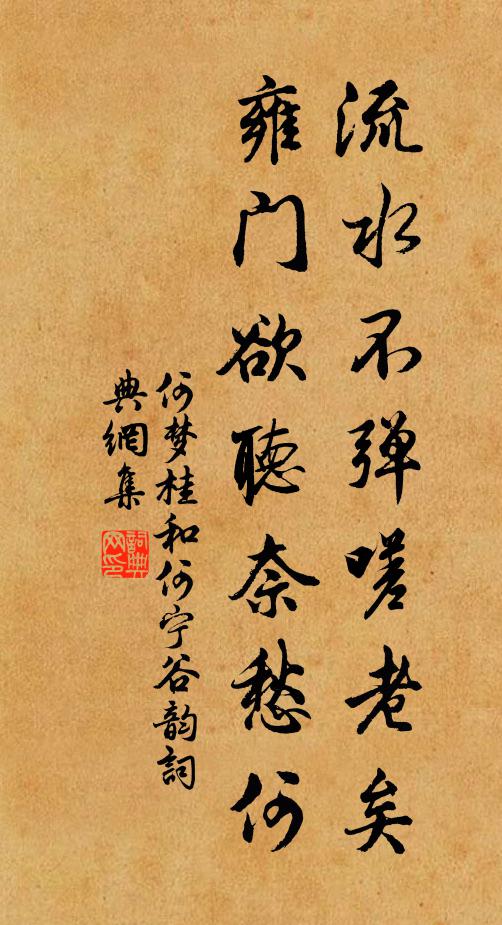 流水不弹嗟老矣
雍门欲聽奈愁何
何梦桂和何宁谷韵詞
典網集
詞典网印